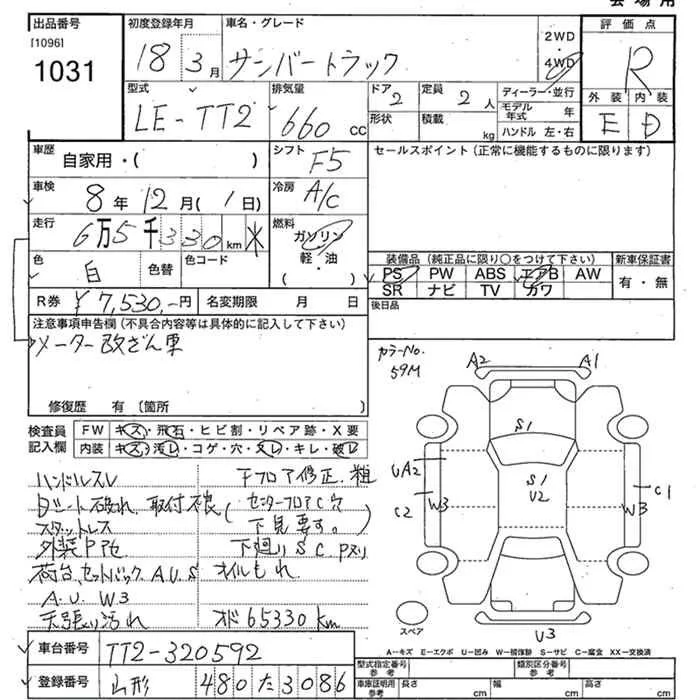 会場用
出品番号
[1096]
1031
初度登録年月
18 3月
車名・グレード
サンバートラック
2WD
4WD
評価点
R
外装 内装
E D
型式
LE-TT2
排気量
660 cc
ドア
2
定員
2 人
形状
積載
kg
ディーラー・並行
モデル年式 年
ハンドル 左・右
車歴
自家用・( )
シフト
F5
セールスポイント(正常に機能するものに限ります)
車検
8年 12月( 1日)
冷房
A/C
走行
6万5千330km ✕
燃料
ガソリン・軽・油
色
白
色替
色コード
装備品(純正品に限り○をつけて下さい)
新車保証書
PS PW ABS エアB AW
有・無
SR ナビ TV カワ
R券 ¥7,530-円
名変期限 月 日
後日品
注意事項申告欄(不具合内容等は具体的に記入して下さい)
メーター改ざん車
修復歴 有(箇所
検査員記入欄
FW キズ・飛石・ヒビ割・リペア跡・X要
内装 キズ・汚レ・コゲ・穴・スレ・キレ・破レ
ハンドルスレ
シート破れ、取付不良
スタットレス
外装P色
荷台、セットバックA.U.S
A.U W3
天張り汚れ
下フロア修正、粗
(センターフロアC穴
下見要す。)
下廻りSC Pヌリ
オイルもれ
オド65330km
カラーNo.
59M
A2 A1
S1
S1
U2
UA2
C2
W3
W3
C1
U3
スペア
A-キズ E-エクボ U-凹み W-補修跡 S-サビ C-腐食 XX-交換済
車台番号
TT2-320592
登録番号
山形 480た3086
型式指定番号
参考
類別区分番号
参考
車庫証明用
参考
長さ cm 幅 cm 高さ cm